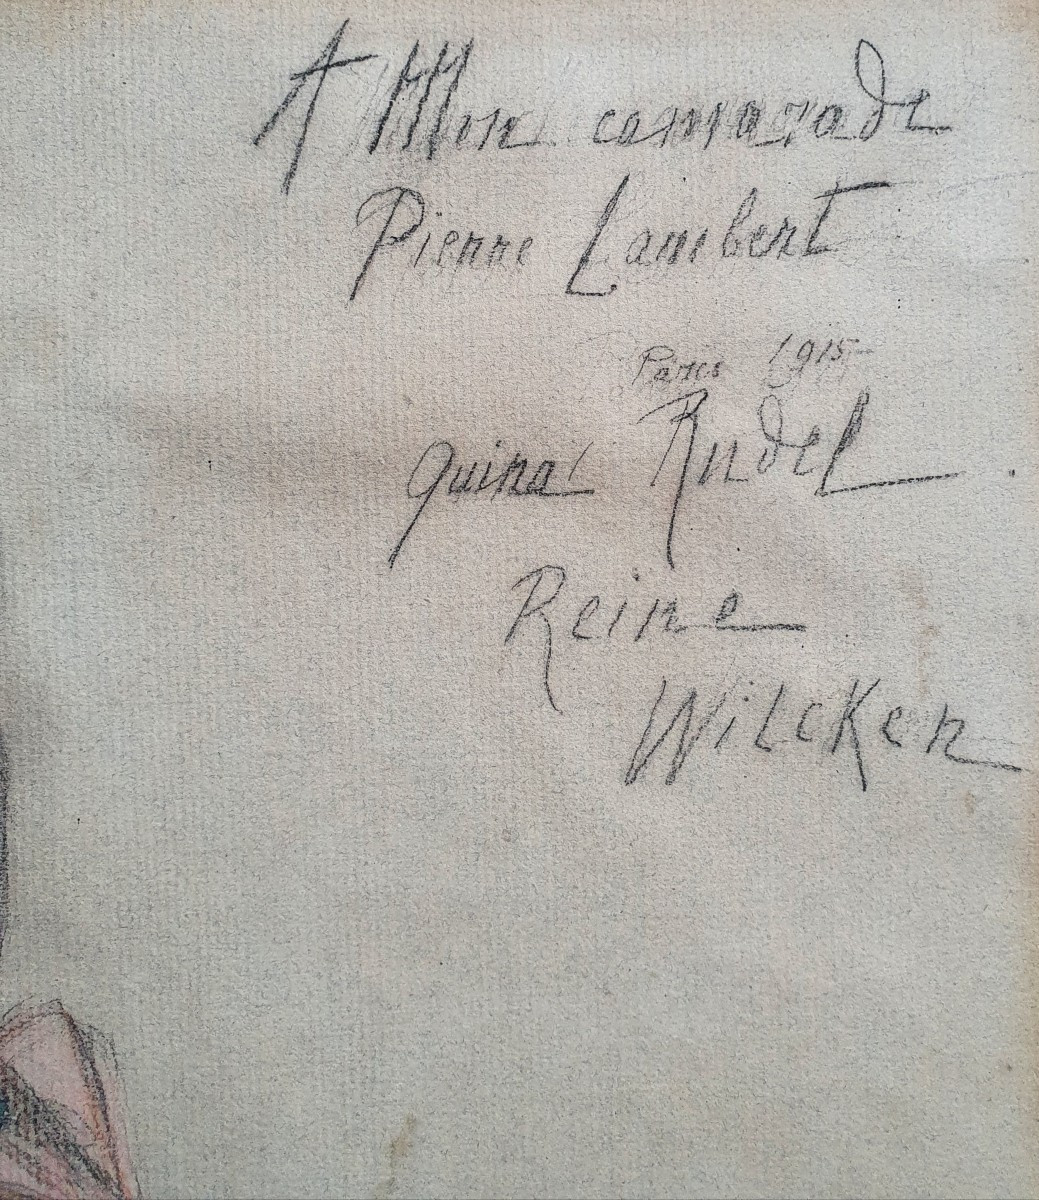 A Mon camarade
Pierre Lambert
Paris 1915
quinal Rudel
Reine
Wilcken